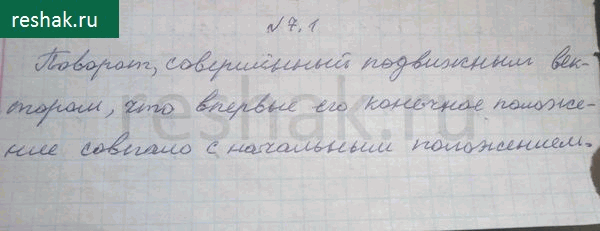 reshak.ru
№7.1
Поворот, совершённый подвижным век-
тором, что впервые его конечное положе-
ние совпало с начальным положением.
reshak.ru